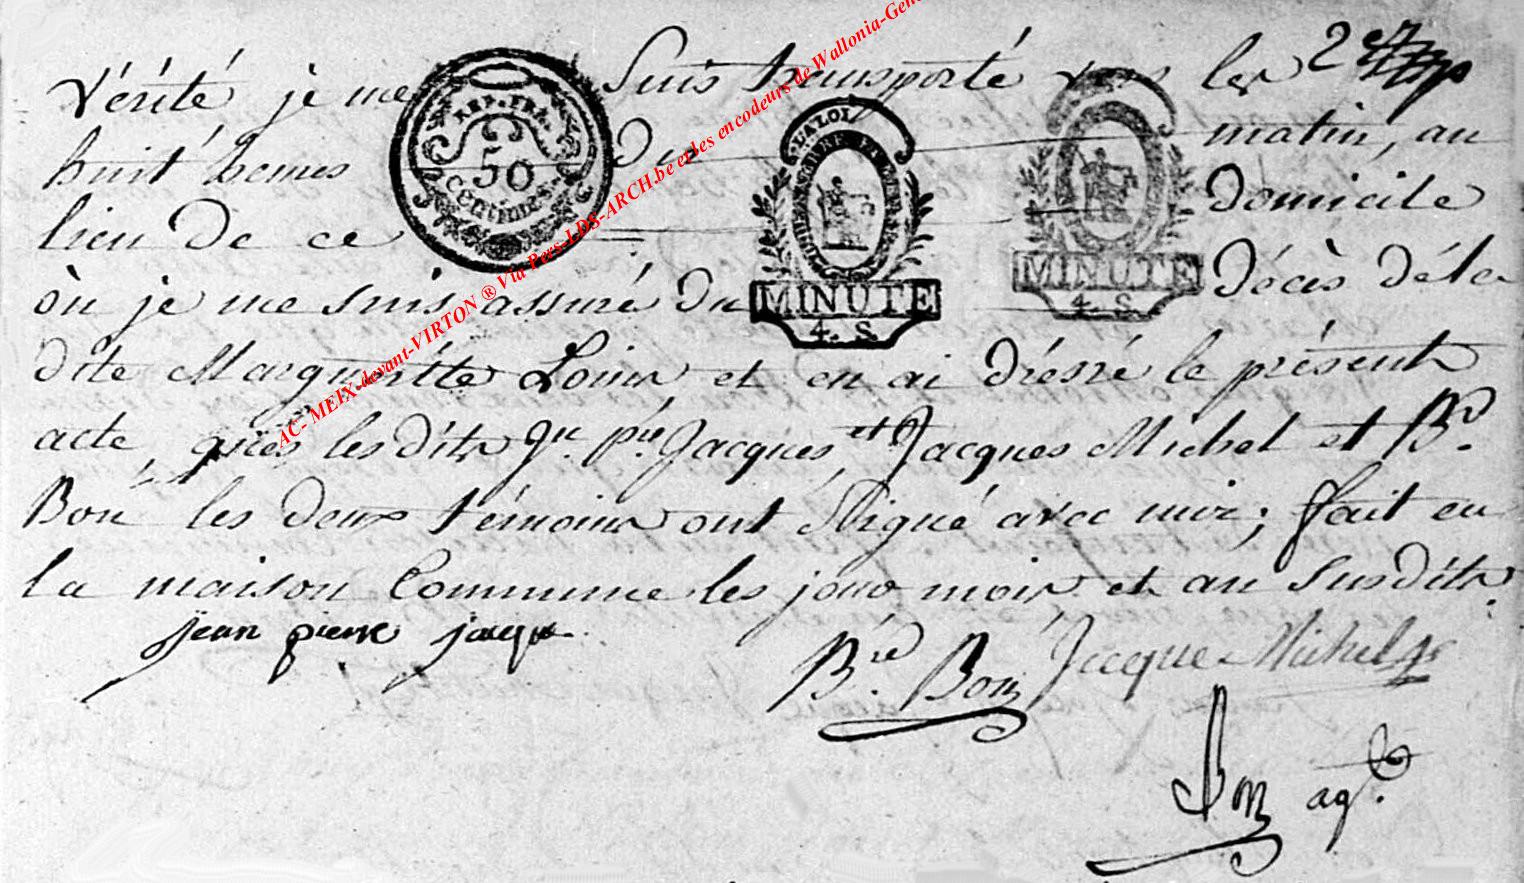 Vérité, je me Suis transporté vers les 2
huit heures du matin, au
lieu de ce domicile
òu je me suis assuré du décès déla
dite Margueritte Louis et en ai dréssé le présent
acte, les dits Jn. pre. Jacques, et Jacques Michel et Brd.
Bon les deux témoins ont Signé avec moi; fait en
la maison Commune les jour mois et an Susdits.
jean pierre jacque
Bre. Bon Jacque Michel
Bon agt.
REP. FRA.
50
CENTIMES.
LA LOI
MINUTE
4. S.
MINUTE
4. S.
AC- MEIX-devant-VIRTON ® Via Pers-LDS-ARCH.be et les encodeurs de Wallonia-Gen